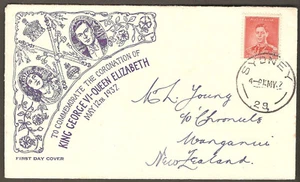 TO COMMEMORATE THE CORONATION OF
KING GEORGE VI - QUEEN ELIZABETH
MAY 12th 1937
FIRST DAY COVER
SYDNEY
28
M. L. Young
c/o Chronicle
Wanganui
New Zealand.